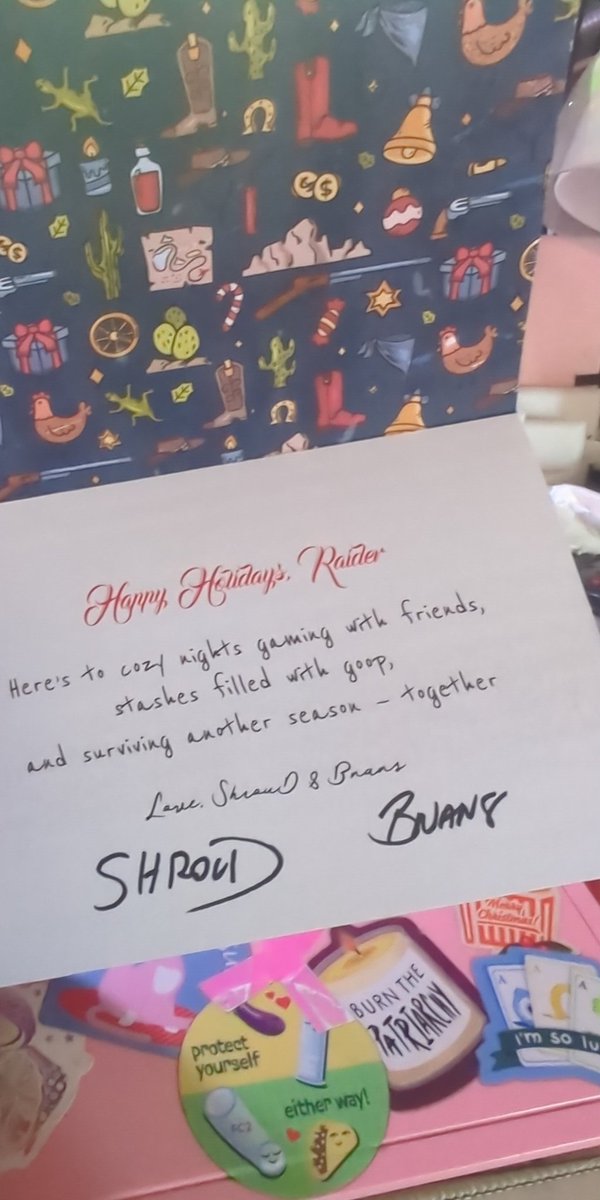 Happy Holidays, Raider
Here's to cozy nights gaming with friends,
stashes filled with goop,
and surviving another season – together
Love, Shroud & Bnans
SHROUD
BNANS
Merry
Christmas!
BURN THE
PATRIARCHY
I'm so lu
protect
yourself
either way!
FC2
A
A
A